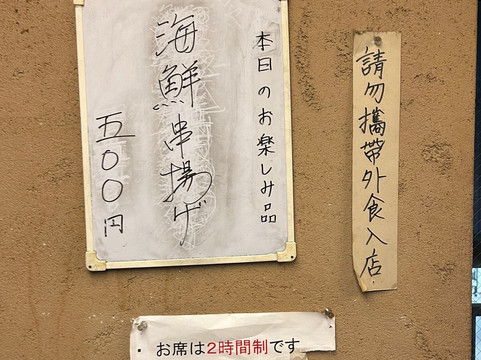 本日のお楽しみ品
海鮮串揚げ
五〇〇円
請勿攜帶外食入店
・お席は2時間制です